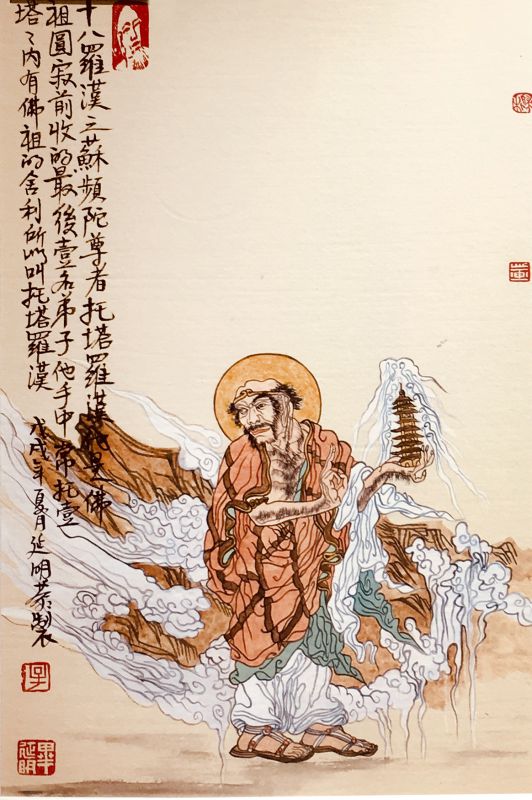 十八羅漢之蘇頻陀尊者托塔羅漢他是佛
祖圓寂前收的最後壹名弟子他手中常托壹
塔〻内有佛祖的舍利所以叫托塔羅漢
戊戌年夏月延明恭製
畢延明